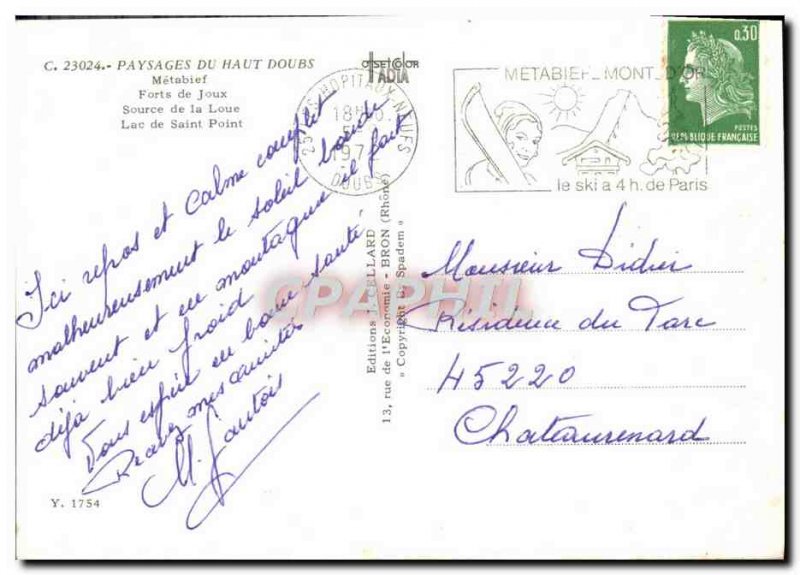 C. 23024.- PAYSAGES DU HAUT DOUBS
Métabief
Forts de Joux
Source de la Loue
Lac de Saint Point
OFFSETCOLOR
IADIA
HOPITAUX-NEUFS
18H
197
DOUBS
METABIEF_MONT_D'OR
le ski a 4 h. de Paris
0,30
POSTES
REPUBLIQUE FRANÇAISE
Ici repos et Calme complet
malheureusement le soleil boude
souvent et en montagne il fait
déjà bien froid
Vous espère en bonne santé
Recevez mes amitiés
M.
Y. 1754
Editions J. CELLARD
13, rue de l'Economie - BRON (Rhône)
« Copyright by Spadem »
CPAPHIL
Monsieur Didier
Résidence du Parc
45220
Chateaurenard